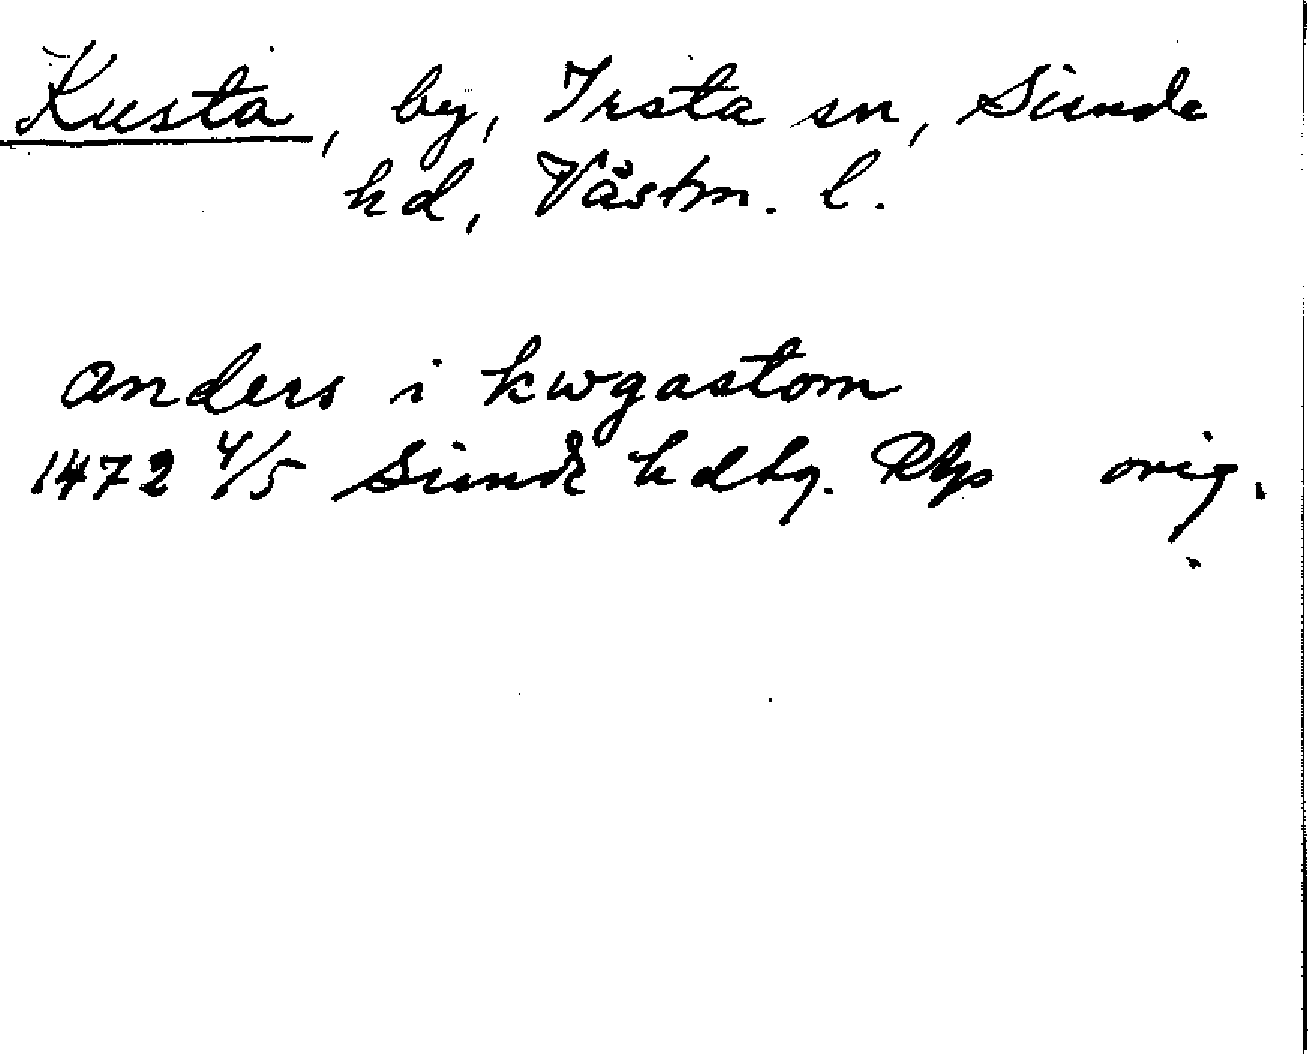 Kusta, by, Irsta sn, Siende
hd, Västm. l.
Anders i kwgastom
1472 4/5 Siende hdtg. Rkp orig.